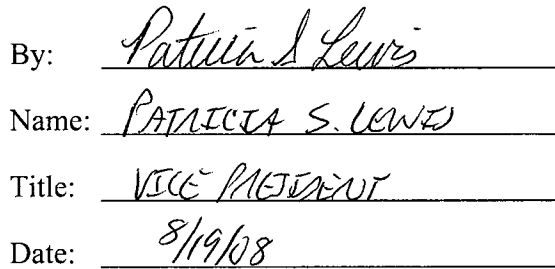 By: Patricia S Lewis
Name: PATRICIA S. LEWIS
Title: VICE PRESIDENT
Date: 8/19/08